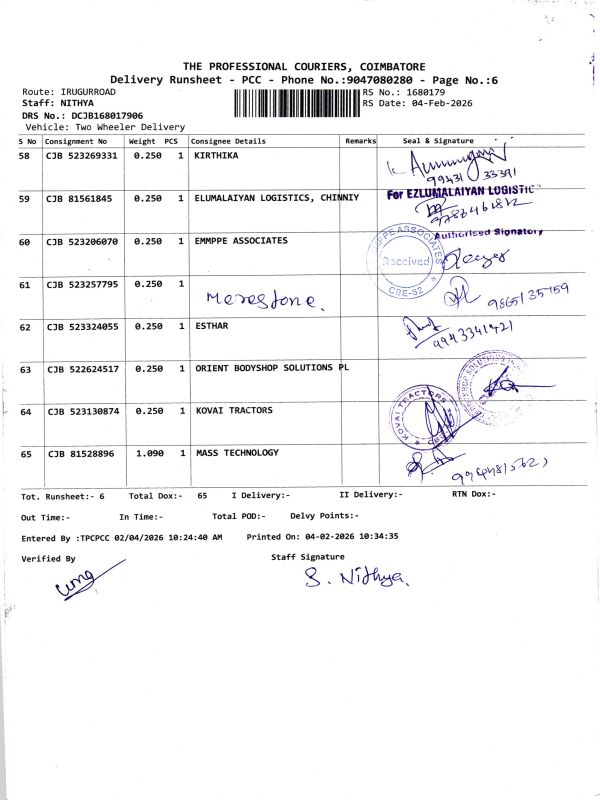 THE PROFESSIONAL COURIERS, COIMBATORE
Delivery Runsheet - PCC - Phone No.:9047080280 - Page No.:6
Route: IRUGURROAD RS No.: 1680179
Staff: NITHYA RS Date: 04-Feb-2026
DRS No.: DCJB168017906
Vehicle: Two Wheeler Delivery
S No Consignment No Weight PCS Consignee Details Remarks Seal & Signature
58 CJB 523269331 0.250 1 KIRTHIKA
99431 33391
59 CJB 81561845 0.250 1 ELUMALAIYAN LOGISTICS, CHINNIY For EZLUMALAIYAN LOGISTIC
Authorised Signatory
60 CJB 523206070 0.250 1 EMMPPE ASSOCIATES
EMMPPE ASSOCIATES
Received
CBE-62
61 CJB 523257795 0.250 1
Merestone.
62 CJB 523324055 0.250 1 ESTHAR
9943341421
63 CJB 522624517 0.250 1 ORIENT BODYSHOP SOLUTIONS PL
64 CJB 523130874 0.250 1 KOVAI TRACTORS
KOVAI TRACTORS
65 CJB 81528896 1.090 1 MASS TECHNOLOGY
Tot. Runsheet:- 6 Total Dox:- 65 I Delivery:- II Delivery:- RTN Dox:-
Out Time:- In Time:- Total POD:- Delvy Points:-
Entered By :TPCPCC 02/04/2026 10:24:40 AM Printed On: 04-02-2026 10:34:35
Verified By Staff Signature
S. Nithya.